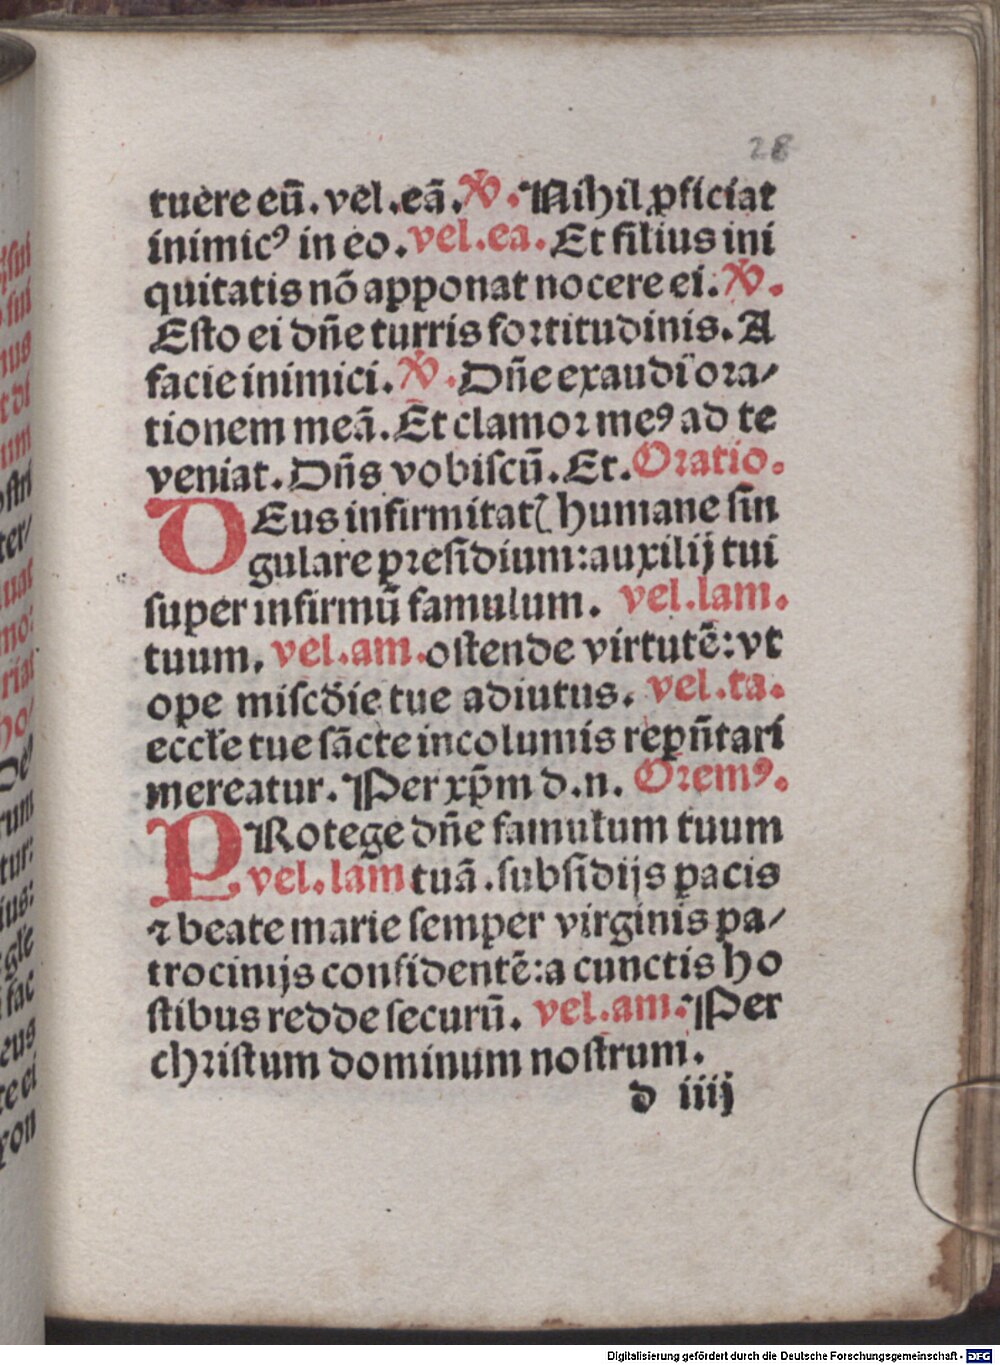 28
tuere eū. vel. eā. ℣. Nihil ꝓficiat
inimicꝰ in eo. vel. ea. Et filius ini
quitatis nō apponat nocere ei. ℣.
Esto ei dñe turris fortitudinis. A
facie inimici. ℣. Dñe exaudi ora⸗
tionem meā. Et clamor meꝰ ad te
veniat. Dñs vobiſcū. Et. Oratio.
DEus infirmitatꝭ humane ſin
gulare preſidium: auxilij tui
ſuper infirmū famulum. vel. lam.
tuum. vel. am. oſtende virtutē: vt
ope miſcd̄ie tue adiutus. vel. ta.
eccłe tue ſācte incolumis repñtari
mereatur. Per xp̄m d. n. Oremꝰ.
PRotege dñe famulum tuum
vel. lam tuā. ſubſidijs pacis
⁊ beate marie ſemper virginis pa⸗
trocinijs confidentē: a cunctis ho
ſtibus redde ſecurū. vel. am. Per
chriſtum dominum noſtrum.
d iiij
Digitalisierung gefördert durch die Deutsche Forschungsgemeinschaft - DFG